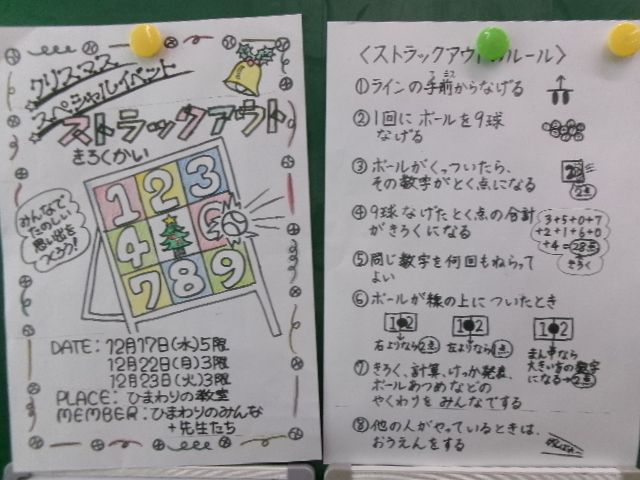 クリスマス
スペシャルイベント
ストラックアウト
きろくかい
1 2 3
4 6
7 8 9
みんなで
たのしい
思い出を
つくろう!
DATE: 12月17日(水)5限
12月22日(月)3限
12月23日(火)3限
PLACE: ひまわりの教室
MEMBER: ひまわりのみんな
+先生たち
<ストラックアウトのルール>
①ラインの手前からなげる
②1回にボールを9球
なげる
③ボールがくっついたら、
その数字がとく点になる
2点
④9球なげたとく点の合計
がきろくになる
3+5+0+7
+2+1+6+0
+4=28点
きろく
⑤同じ数字を何回もねらって
よい
⑥ボールが線の上についたとき
1 2
右よりなら2点
1 2
左よりなら1点
1 2
まん中なら
大きい方の数字
になる→2点
⑦きろく、計算、けっか発表、
ボールあつめなどの
やくわりをみんなでする
⑧他の人がやっているときは、
おうえんをする